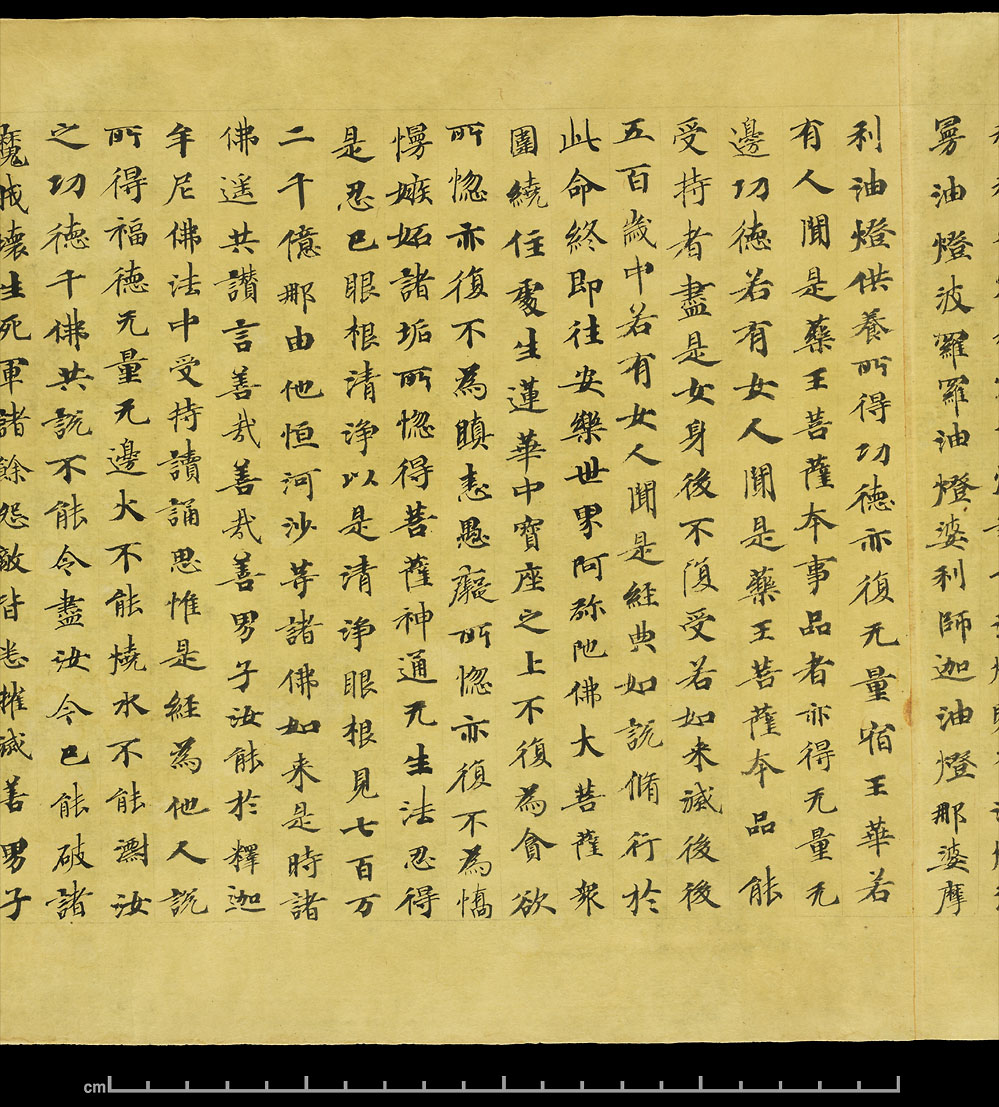 曼油燈波羅羅油燈婆利師迦油燈那婆摩
利油燈供養所得功德亦復无量宿王華若
有人聞是藥王菩薩本事品者亦得无量无
邊功德若有女人聞是藥王菩薩本品能
受持者盡是女身後不復受若如来滅後後
五百歲中若有女人聞是經典如說脩行於
此命終即往安樂世界阿弥陁佛大菩薩衆
圍繞住處生蓮華中寶座之上不復為貪欲
所惚亦復不為瞋恚愚癡所惚亦復不為憍
慢嫉妬諸垢所惚得菩薩神通无生法忍得
是忍已眼根清淨以是清淨眼根見七百万
二千億那由他恒河沙等諸佛如来是時諸
佛遥共讃言善哉善哉善男子汝能於釋迦
牟尼佛法中受持讀誦思惟是經為他人說
所得福德无量无邊火不能燒水不能漂汝
之功德千佛共說不能令盡汝今已能破諸
魔賊壞生死軍諸餘怨敵皆悉摧滅善男子